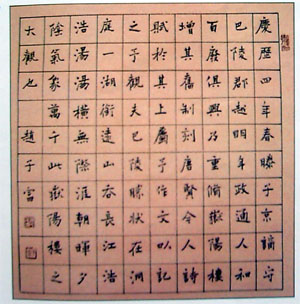 慶歷四年春滕子京謫守
巴陵郡越明年政通人和
百廢俱興乃重脩嶽陽樓
增其舊制刻唐賢今人詩
賦於其上屬予作文以記
之予觀夫巴陵勝狀在洞
庭一湖銜遠山吞長江浩
浩湯湯橫無際涯朝暉夕
陰氣象萬千此嶽陽樓之
大觀也 趙子